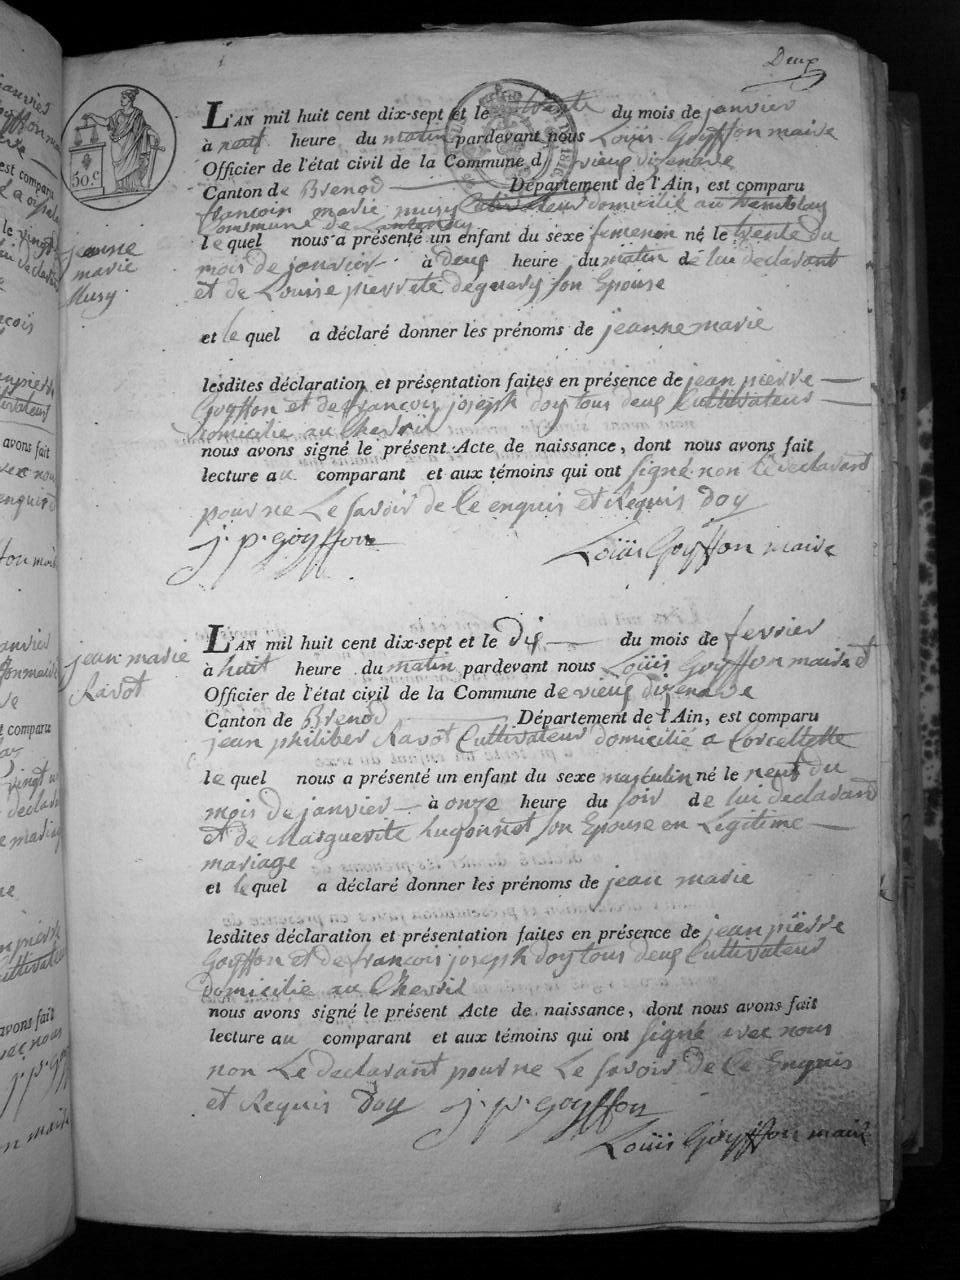 Deux
L'AN mil huit cent dix-sept et le trente du mois de janvier
à neuf heure du matin pardevant nous Loüis Goyffon maire
Officier de l'état civil de la Commune d vieux dizenave
Canton de Brenod Département de l'Ain, est comparu
francois marie musy Cultivateur domicilié au tremblay
Commune de Lantenay
jeanne
marie
Musy
le quel nous a présenté un enfant du sexe femenin né le trente du
mois de janvier à deux heure du matin de lui declarant
et de Louise pierrete deguery son Epouse
et le quel a déclaré donner les prénoms de jeanne marie
lesdites déclaration et présentation faites en présence de jean pierre
Goyffon et de françois joseph doy tous deux Cultivateurs
domicilie au Chevril
nous avons signé le présent Acte de naissance, dont nous avons fait
lecture au comparant et aux témoins qui ont signé non le declarant
pour ne Le savoir de Ce enquis et Requis Doy
j. p. goyffon Loüis Goyffon maire
jean marie
Ravot
L'AN mil huit cent dix-sept et le dix du mois de fevrier
à huit heure du matin pardevant nous Loüis Goyffon maire et
Officier de l'état civil de la Commune de vieux dizenave
Canton de Brenod Département de l'Ain, est comparu
jean philiber Ravot Cultivateur domicilié a Corcelette
le quel nous a présenté un enfant du sexe masculin né le neuf du
mois de janvier à onze heure du soir de lui declarant
et de Marguerite hugonnet son Epouse en Legitime
mariage
et le quel a déclaré donner les prénoms de jean marie
lesdites déclaration et présentation faites en présence de jean pierre
Goyffon et de francois joseph doy tous deux Cultivateur
Domicilie au Chevril
nous avons signé le présent Acte de naissance, dont nous avons fait
lecture au comparant et aux témoins qui ont signé avec nous
non Le declarant pour ne Le savoir de Ce Enquis
et Requis Doy j. p. goyffon
Loüis Goyffon maire